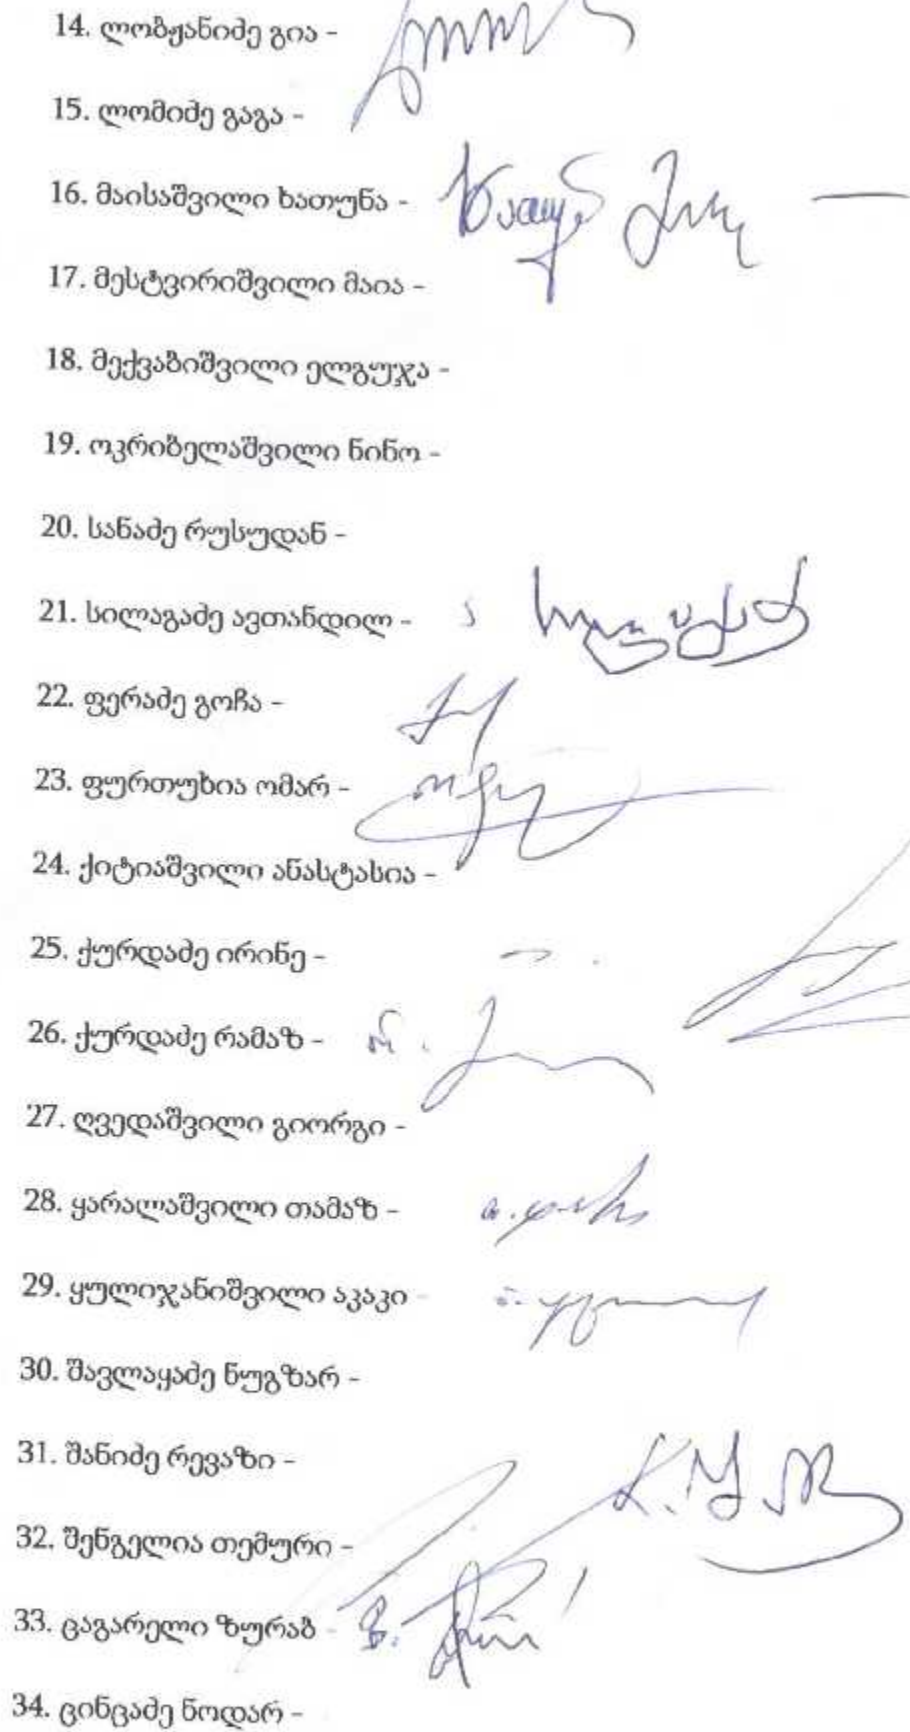 14. ლობჟანიძე გია -
15. ლომიძე გაგა -
16. მაისაშვილი ხათუნა -
17. მესტვირიშვილი მაია -
18. მექვაბიშვილი ელგუჯა -
19. ოკრიბელაშვილი ნინო -
20. სანაძე რუსუდან -
21. სილაგაძე ავთანდილ -
22. ფერაძე გოჩა -
23. ფურთუხია ომარ -
24. ქიტიაშვილი ანასტასია -
25. ქურდაძე ირინე -
26. ქურდაძე რამაზ -
27. ღვედაშვილი გიორგი -
28. ყარალაშვილი თამაზ -
29. ყულიჯანიშვილი აკაკი -
30. შავლაყაძე ნუგზარ -
31. შანიძე რევაზი -
32. შენგელია თემური -
33. ცაგარელი ზურაბ -
34. ცინცაძე ნოდარ -